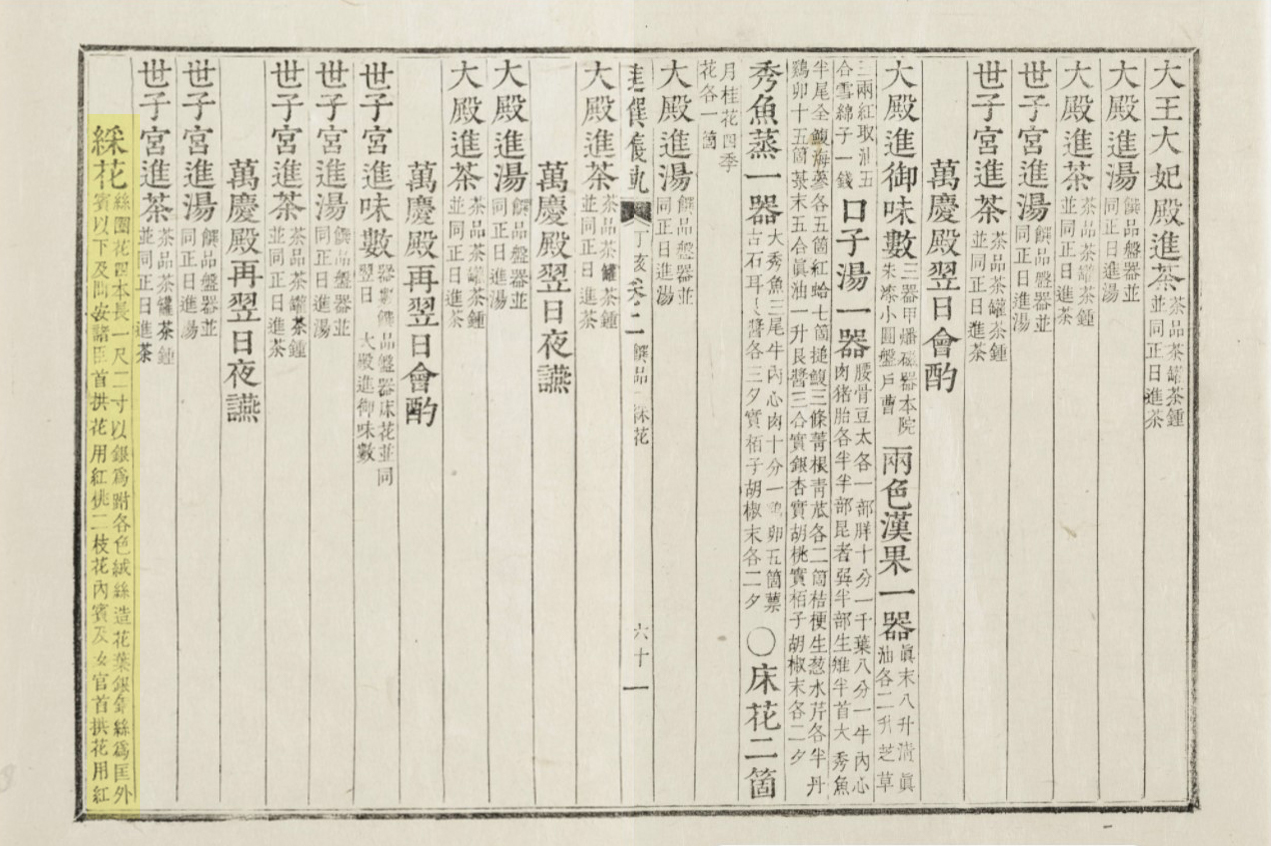 大王大妃殿進茶茶品茶罐茶鍾並同正日進茶
大殿進湯饌品盤器並同正日進湯
大殿進茶茶品茶罐茶鍾並同正日進茶
世子宮進湯饌品盤器並同正日進湯
世子宮進茶茶品茶罐茶鍾並同正日進茶
萬慶殿翌日會酌
大殿進御味數三器甲燔磁器本院朱漆小圓盤戶曹 兩色漢果一器眞末八升淸眞油各二升芝草
三兩紅取油五合雪綿子一錢 口子湯一器腰骨豆太各一部䑋十分一千葉八分一牛內心肉猪胎各半半部昆者巽半部生雉半首大秀魚
半尾全鰒海蔘各五箇紅蛤七箇搥鰒三條菁根靑苽各二箇桔梗生葱水芹各半丹鷄卵十五箇菉末五合眞油一升艮醬三合實銀杏實胡桃實栢子胡椒末各二夕
秀魚蒸一器大秀魚三尾牛內心肉十分一鷄卵五箇蔈古石耳艮醬各三夕實栢子胡椒末各二夕 ○床花二箇
月桂花四季花各一箇
大殿進湯饌品盤器並同正日進湯
進饌儀軌 丁亥 卷二 饌品 採花 六十一
大殿進茶茶品茶罐茶鍾並同正日進茶
萬慶殿翌日夜讌
大殿進湯饌品盤器並同正日進湯
大殿進茶茶品茶罐茶鍾並同正日進茶
萬慶殿再翌日會酌
世子宮進味數器數饌品盤器床花並同翌日 大殿進御味數
世子宮進湯饌品盤器並同正日進湯
世子宮進茶茶品茶罐茶鍾並同正日進茶
萬慶殿再翌日夜讌
世子宮進湯饌品盤器並同正日進湯
世子宮進茶茶品茶罐茶鍾並同正日進茶
綵花絲圈花四本長一尺二寸以銀爲跗各色絨絲造花葉銀絲爲匡外賓以下及問安諸臣首拱花用紅桃二枝花內賓及女官首拱花用紅